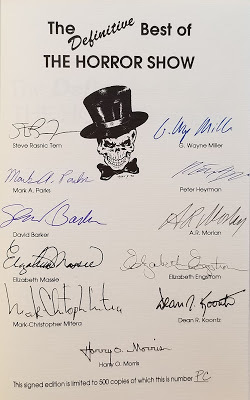 The Definitive Best of
THE HORROR SHOW
Steve Rasnic Tem
G. Wayne Miller
G. Way Mill
Mark A. Parks
Mark A. Parks
Peter Heyrman
David Barker
David Barker
A.R. Morlan
A.R. Morlan
Elizabeth Massie
Elizabeth Massie
Elizabeth Engstrom
Elizabeth Engstrom
Mark-Christopher Mitera
Dean R. Koontz
Dean R. Koontz
Harry O. Morris
Harry O. Morris
This signed edition is limited to 500 copies of which this is number PC